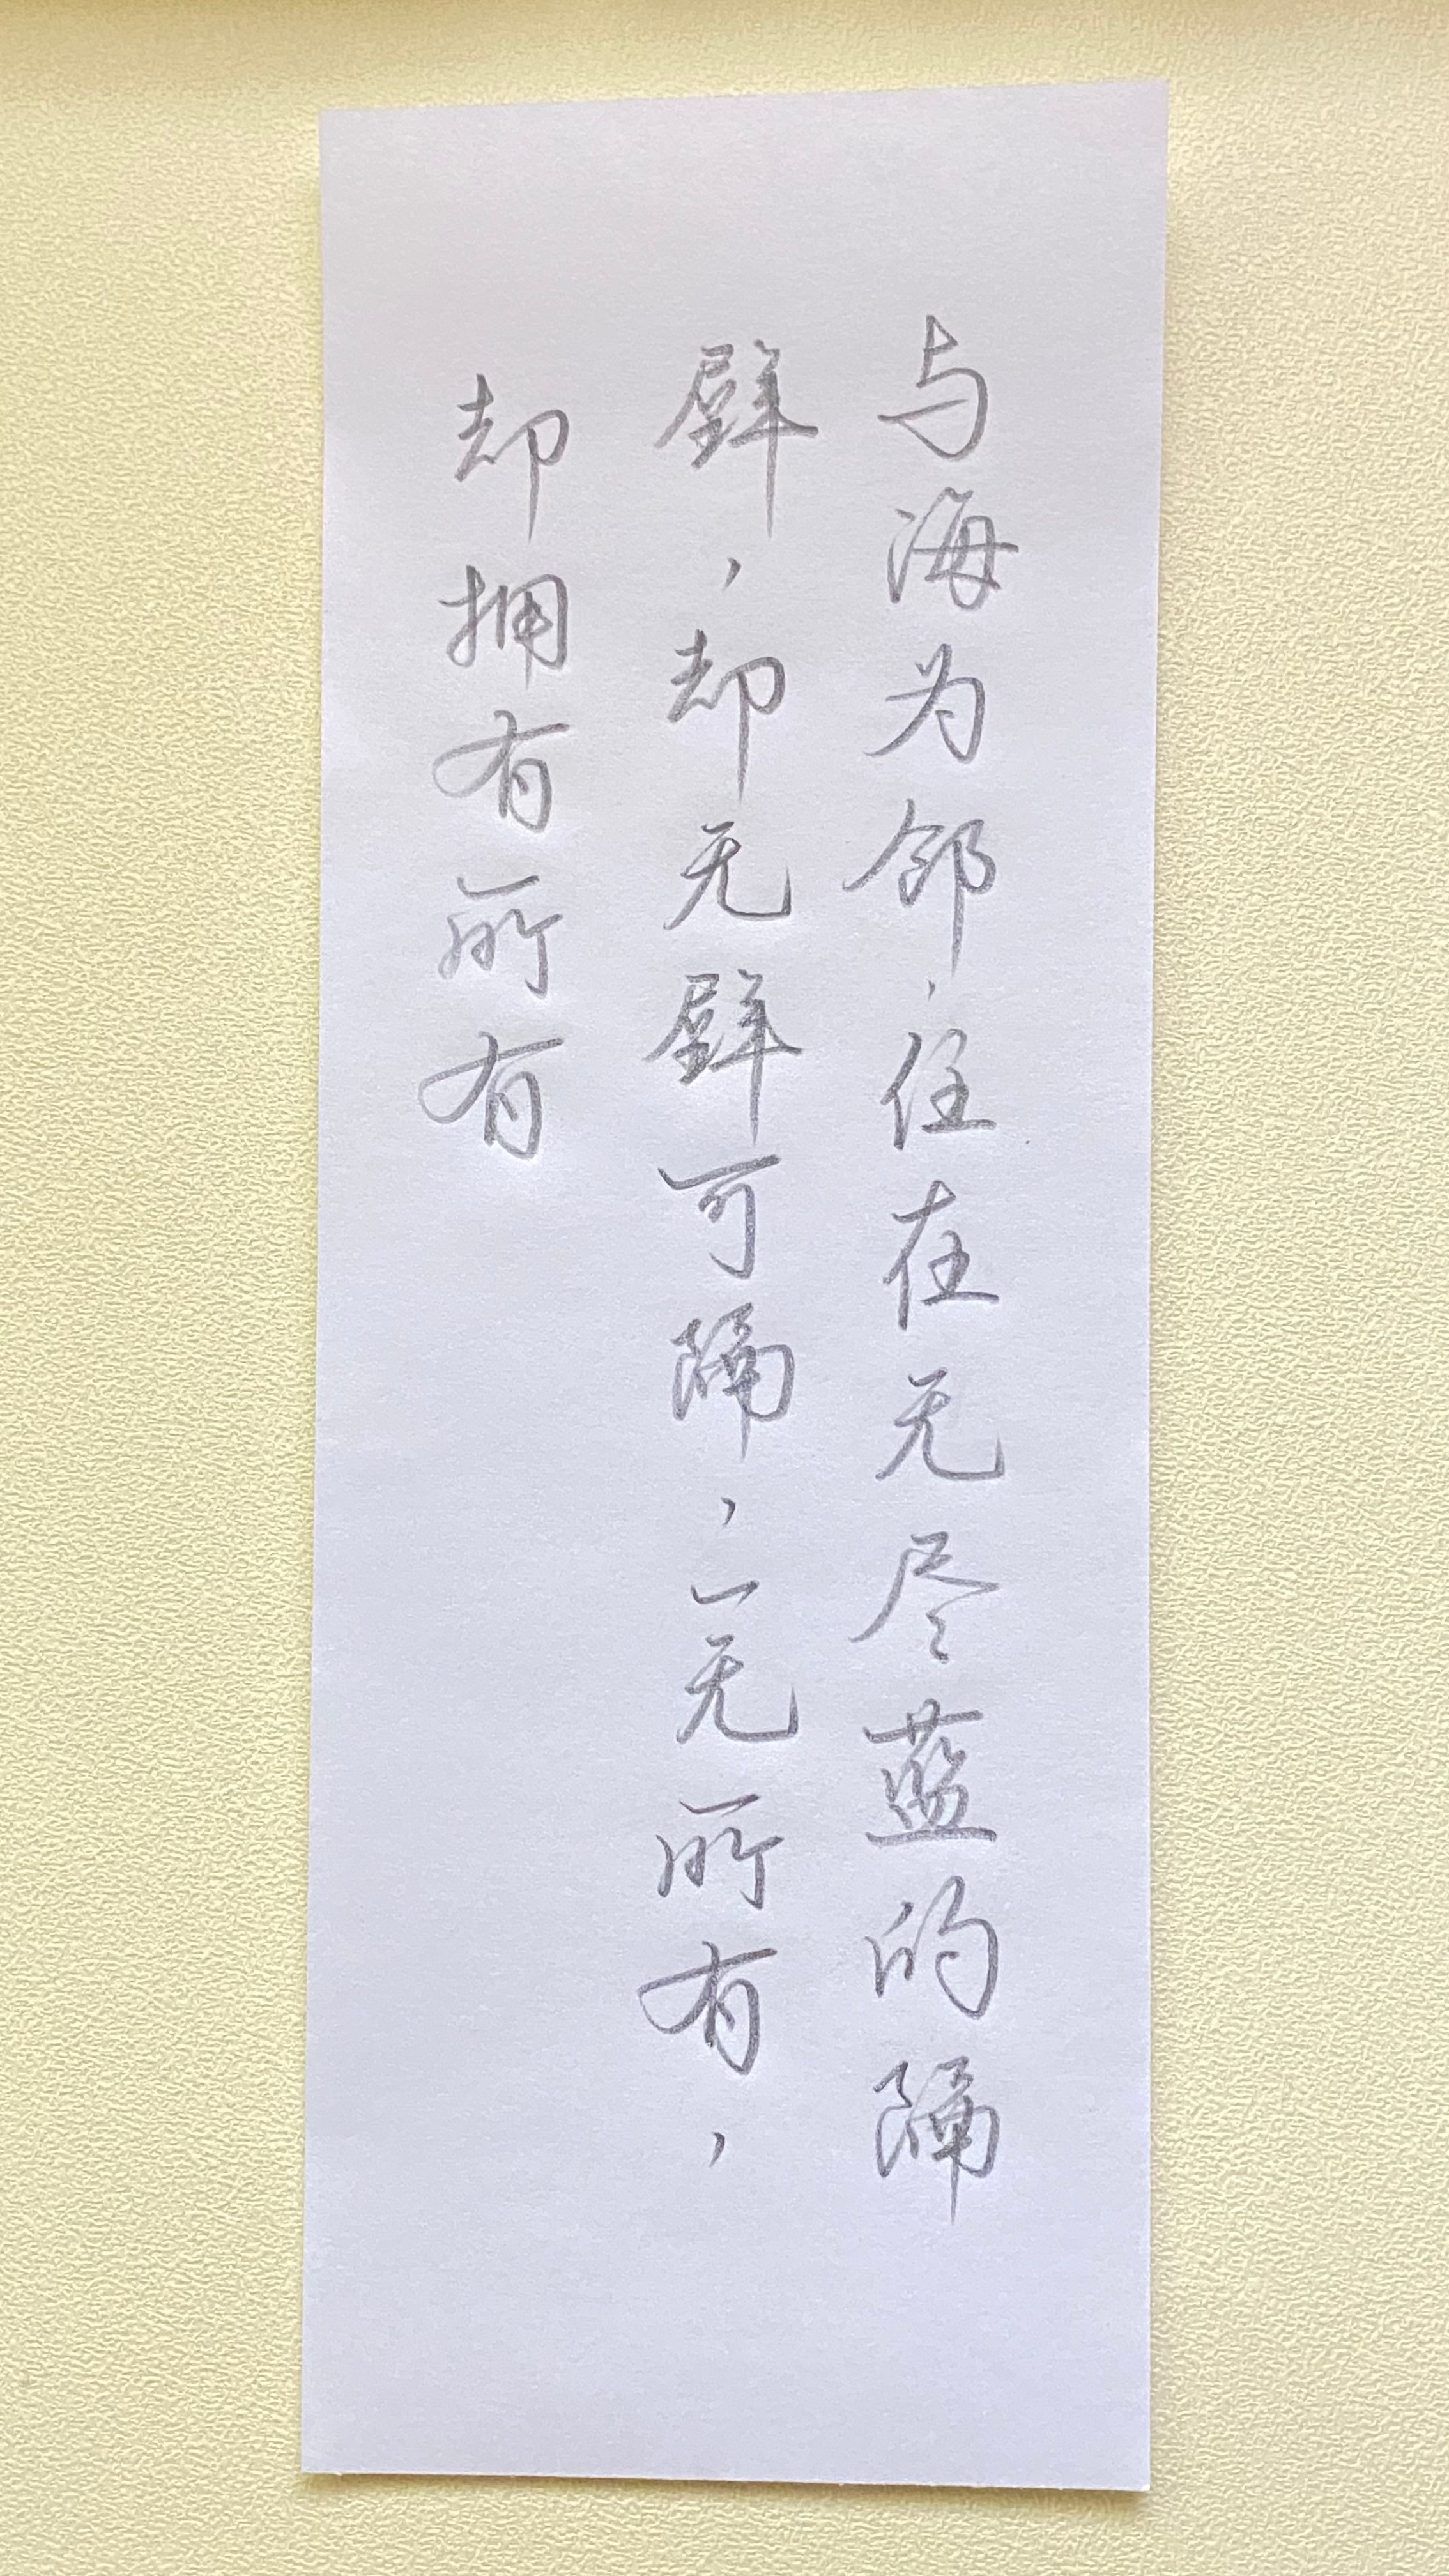 与海为邻,住在无尽蓝的隔
壁,却无壁可隔,一无所有,
却拥有所有